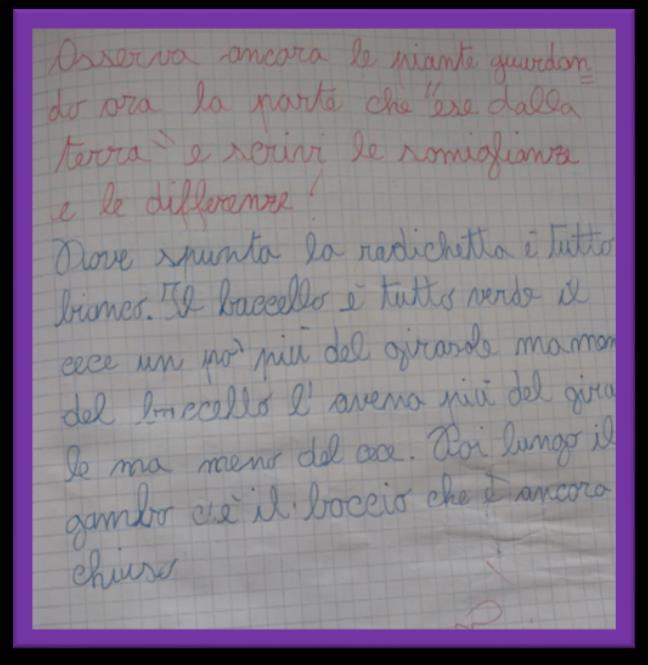 Osserva ancora le piante guardan=
do ora la parte che "ese dalla
terra" e scrivi le somiglianze
e le differenze!
Dove spunta la radichetta è tutto
bianco. Il baccello è tutto verde il
cece un po' più del girasole ma men
del baccello l'avena più del gira
le ma meno del cece. Poi lungo il
gambo c'è il boccio che è ancora
chiuso